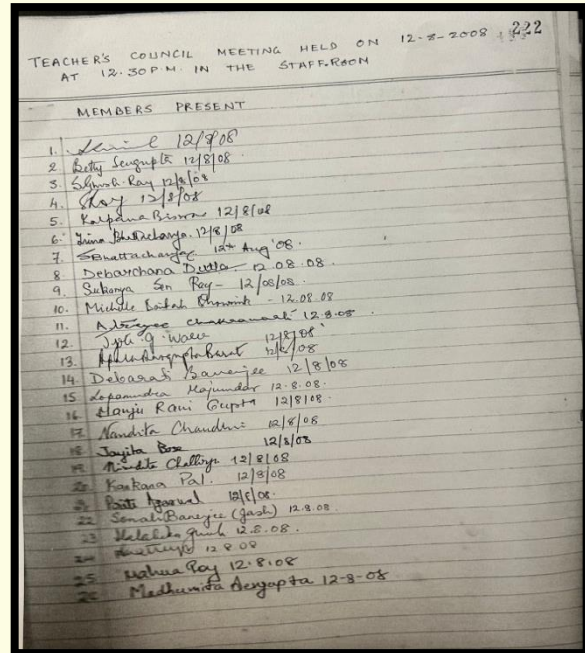 222
TEACHER'S COUNCIL MEETING HELD ON 12-8-2008
AT 12.30 P.M. IN THE STAFF-ROOM
MEMBERS PRESENT
1. 12/8/08
2 Betty Sengupta 12/8/08.
3. Ray 12/8/08
4. 12/8/08
5. Kalpana Biswas 12/8/08
6. Irina Bhattacharya. 12/8/08
7. SBhattacharjee 12th Aug '08.
8 Debarchana Dutta 12.08.08.
9. Sukanya Sen Ray- 12/08/08
10. Michelle - 12.08.08
11. 12.8.08.
12. Jyoti G. 12/8/08
13. 12/8/08
14. Debarati Banerjee 12/8/08
15 Lopamudra Majumdar 12.8.08.
16 Manju Rani Gupta 12/8/08.
17 Nandita Chaudhuri 12/8/08
18 Jayita Bose 12/8/08
19. 12/8/08
20 Kankana Pal. 12/8/08
21 Agarwal 12/8/08.
22 Sonali Banerjee (Jash) 12.8.08.
23 12.8.08.
24 12.8.08
25 Mahua Roy 12.8.08
26 Madhumita Sengupta 12-8-08